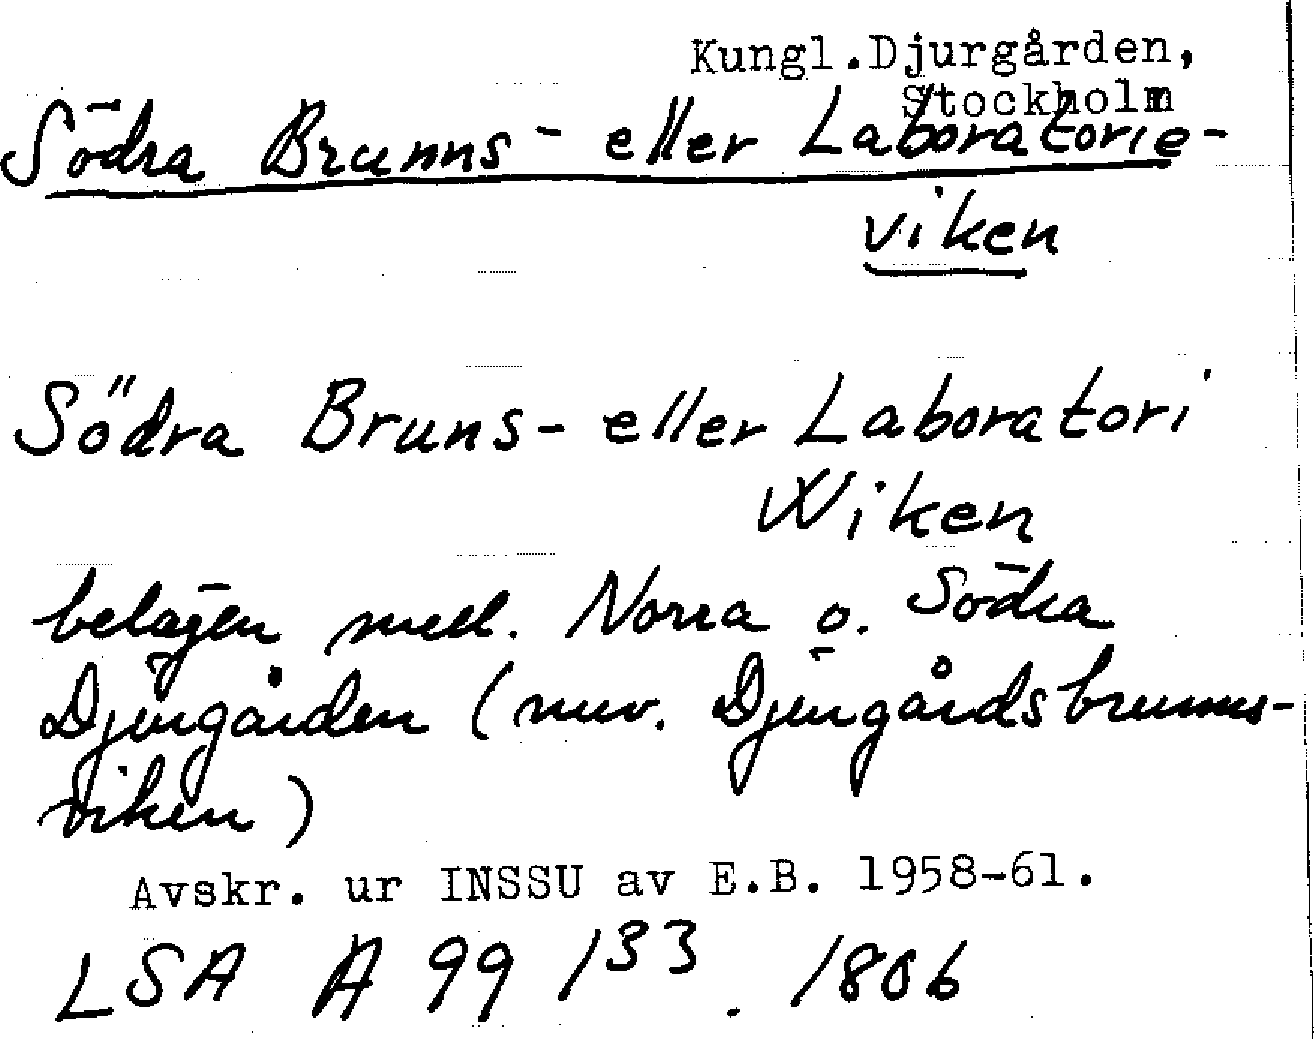 Kungl.Djurgården,
Stockholm
Södra Brunns- eller Laboratorie-
viken
Södra Bruns- eller Laboratori
Wiken
belägen mell. Norra o. Södra
Djurgården (nuv. Djurgårdsbrunns-
viken)
Avskr. ur INSSU av E.B. 1958-61.
LSA A 99 133. 1806